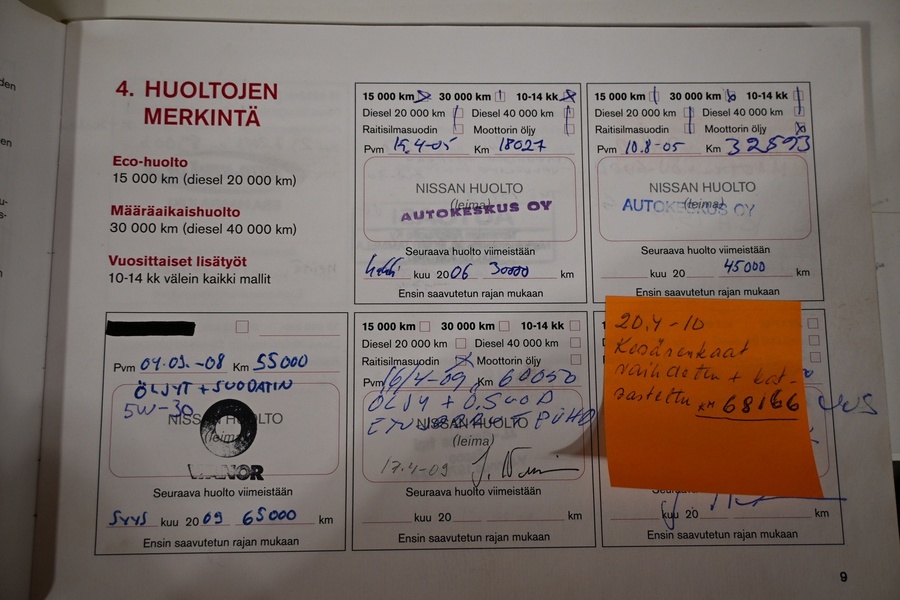 4. HUOLTOJEN
MERKINTÄ
Eco-huolto
15 000 km (diesel 20 000 km)
Määräaikaishuolto
30 000 km (diesel 40 000 km)
Vuosittaiset lisätyöt
10-14 kk välein kaikki mallit
15 000 km 30 000 km 10-14 kk
Diesel 20 000 km Diesel 40 000 km
Raitisilmasuodin Moottorin öljy
Pvm 15.4-05 Km 18027
NISSAN HUOLTO
(leima)
AUTOKESKUS OY
Seuraava huolto viimeistään
kuu 2006 30000 km
Ensin saavutetun rajan mukaan
15 000 km 30 000 km 10-14 kk
Diesel 20 000 km Diesel 40 000 km
Raitisilmasuodin Moottorin öljy
Pvm 10.8-05 Km 32593
NISSAN HUOLTO
(leima)
AUTOKESKUS OY
Seuraava huolto viimeistään
kuu 20 45000 km
Ensin saavutetun rajan mukaan
Pvm 04.09.-08 Km 55000
ÖLJYT + SUODATIN
5W-30
NISSAN HUOLTO
(leima)
VIANOR
Seuraava huolto viimeistään
SYYS kuu 2009 65000 km
Ensin saavutetun rajan mukaan
15 000 km 30 000 km 10-14 kk
Diesel 20 000 km Diesel 40 000 km
Raitisilmasuodin Moottorin öljy
Pvm 16/4-09 Km 60050
ÖLJY + Ö.SUOD
NISSAN HUOLTO
(leima)
17.4-09
Seuraava huolto viimeistään
kuu 20 km
Ensin saavutetun rajan mukaan
20.4-10
Kesärenkaat
vaihdettu + kat-
sastettu KM 68166
kuu 20 km
Ensin saavutetun rajan mukaan
9